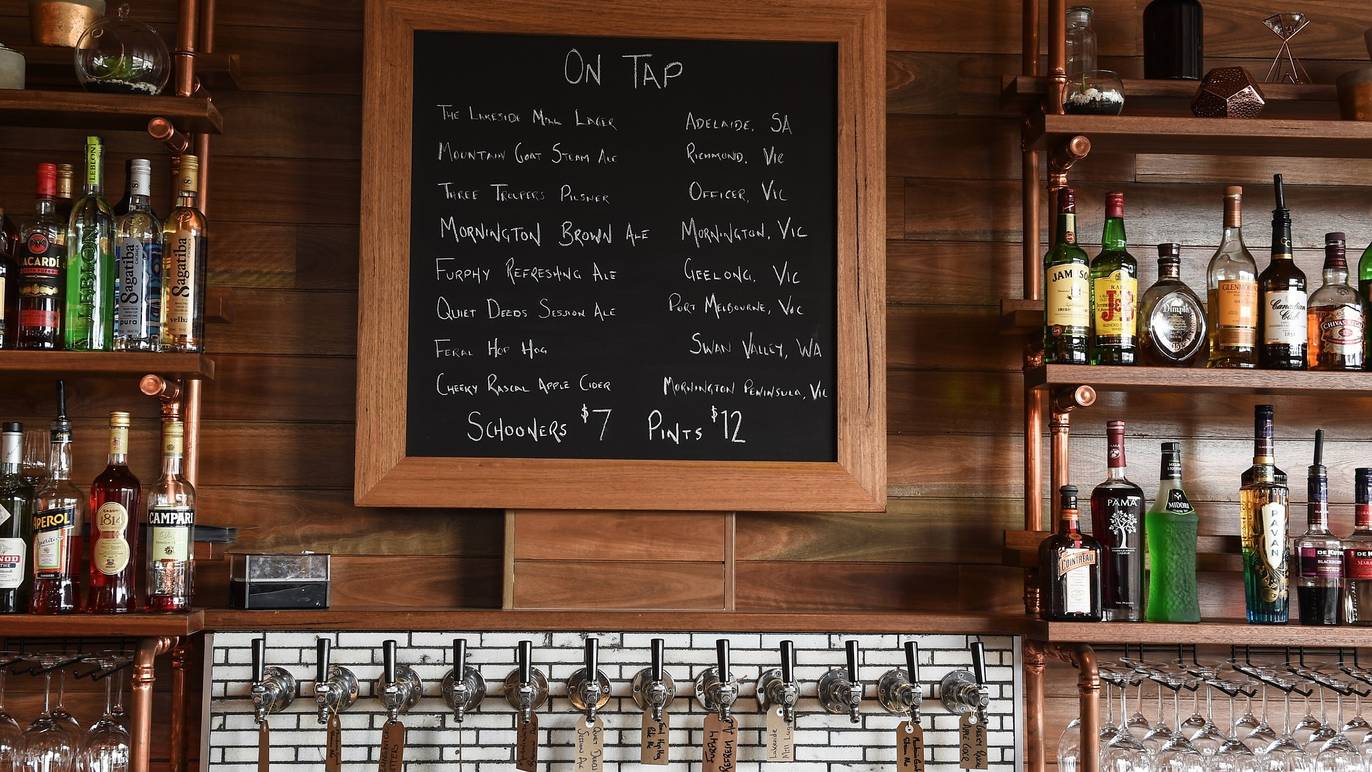 ON TAP
THE LAKESIDE MILL LAGER ADELAIDE, SA
MOUNTAIN GOAT STEAM ALE RICHMOND, VIC
THREE TROUPERS PILSNER OFFICER, VIC
MORNINGTON BROWN ALE MORNINGTON, VIC
FURPHY REFRESHING ALE GEELONG, VIC
QUIET DEEDS SESSION ALE PORT MELBOURNE, VIC
FERAL HOP HOG SWAN VALLEY, WA
CHEEKY RASCAL APPLE CIDER MORNINGTON PENINSULA, VIC
SCHOONERS $7 PINTS $12
LEBLON
BACARDI
LEBLON
Sagatiba
pura
Sagatiba
velha
APEROL
1814
CAMPARI
JAMESON
J&B
Dimple
GLENMORANGIE
Canadian Club
CHIVAS
COINTREAU
PAMA
MIDORI
PAVAN
DE KUYPER